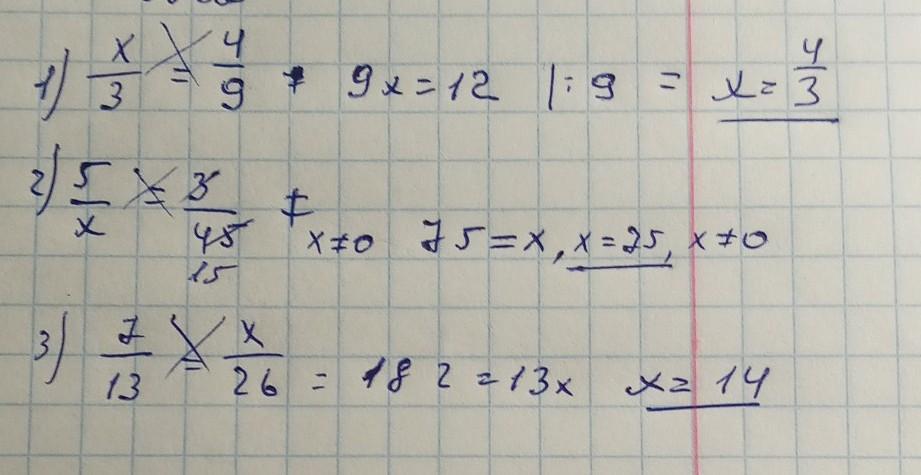 1) x/3 = 4/9 9x = 12 | : 9 = x = 4/3
2) 5/x = 3/45 15 x ≠ 0 75 = x, x = 75, x ≠ 0
3) 7/13 = x/26 = 182 = 13x x = 14